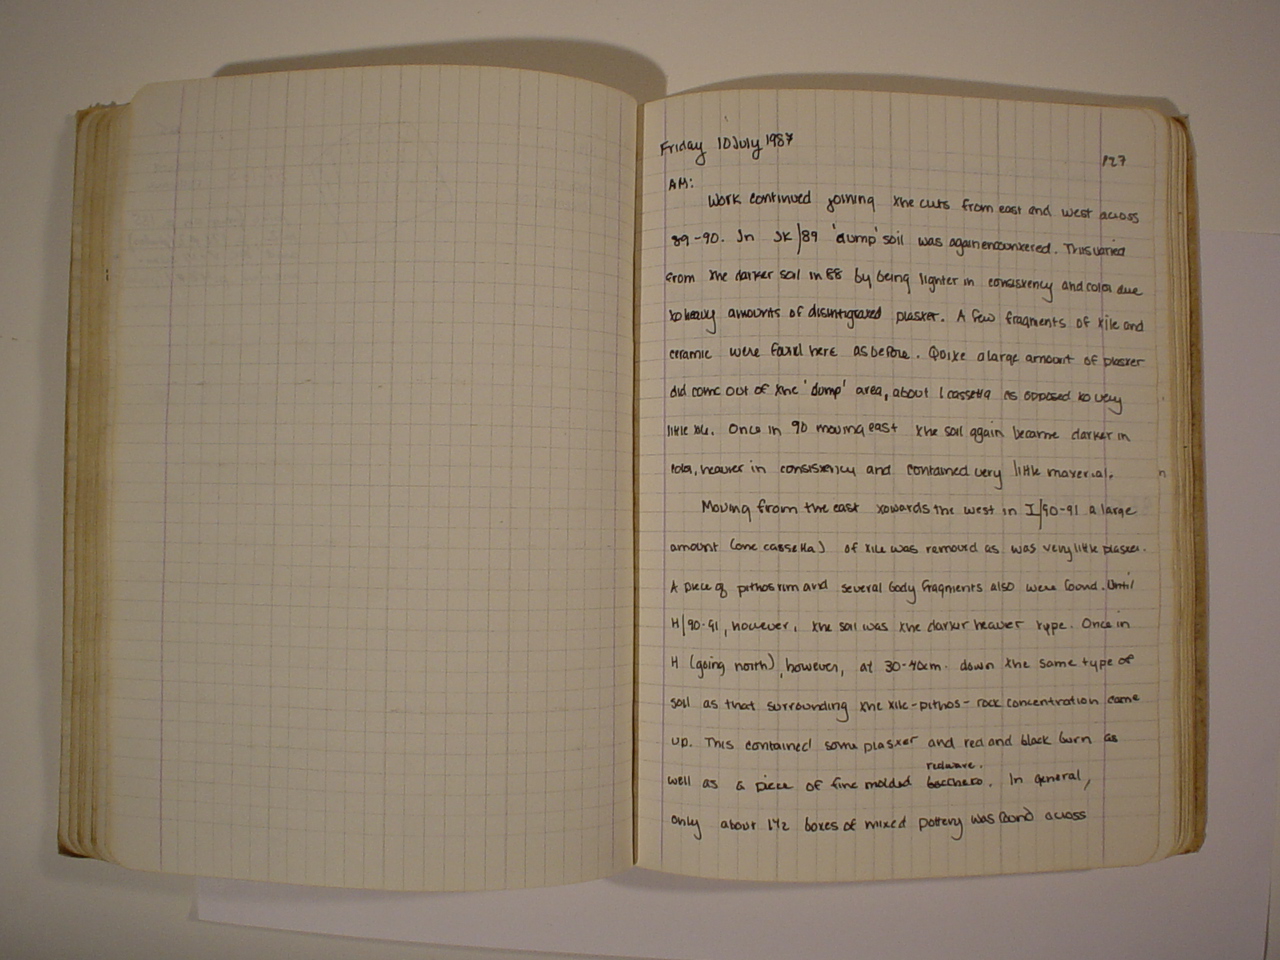 Friday 10 July 1987
127
AM:
Work continued joining the cuts from east and west across
89-90. In JK/89 'dump' soil was again encountered. This varied
from the darker soil in 88 by being lighter in consistency and color due
to heavy amounts of disintigrated plaster. A few fragments of tile and
ceramic were found here as before. Quite a large amount of plaster
did come out of the 'dump' area, about 1 cassetta as opposed to very
little tile. Once in 90 moving east the soil again became darker in
color, heavier in consistency and contained very little material.
Moving from the east towards the west in I/90-91 a large
amount (one cassetta) of tile was removed as was very little plaster.
A piece of pithos rim and several body fragments also were found. Until
H/90-91, however, the soil was the darker heavier type. Once in
H (going north), however, at 30-40cm. down the same type of
soil as that surrounding the tile-pithos-rock concentration came
up. This contained some plaster and red and black burn as
redware.
well as a piece of fine molded bucchero. In general,
only about 1 1/2 boxes of mixed pottery was found across